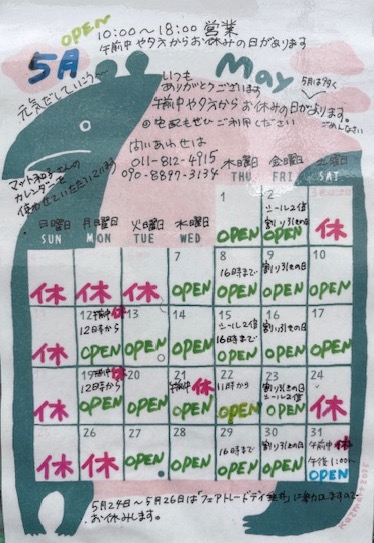 OPEN
10:00〜18:00 営業
午前中や夕方からお休みの日があります
5月
May
元気だしていこう〜
いつも
ありがとうございます
5月は多く
午前中や夕方から お休みの日があります。
ごめんなさい
◎宅配もぜひご利用ください
問い合わせは
011-812-4915
090-8897-3134
マット和子さんの
カレンダーを
使わせていただいています
日曜日 月曜日 火曜日 水曜日 木曜日 金曜日 土曜日
SUN MON TUE WED THU FRI SAT
1 OPEN
2 シール2倍 割り引きの日 OPEN
休
休
休
休
7 OPEN
8 16時まで OPEN
9 割り引きの日 OPEN
10 OPEN
休
12 午前中休 12時から OPEN
13 OPEN
14 OPEN
15 シール2倍 16時まで OPEN
16 割り引きの日 OPEN
17 OPEN
休
19 午前中休 12時から OPEN
20 OPEN
21 午前中休 OPEN
22 11時から OPEN
23 割り引きの日 シール2倍 OPEN
24 休
休
26 休
27 OPEN
28 OPEN
29 16時まで OPEN
30 割り引きの日 OPEN
31 午前中休 午後1:00〜 OPEN
5月24日〜5月26日は「フェアトレードデイ に参加しますので
お休みします。